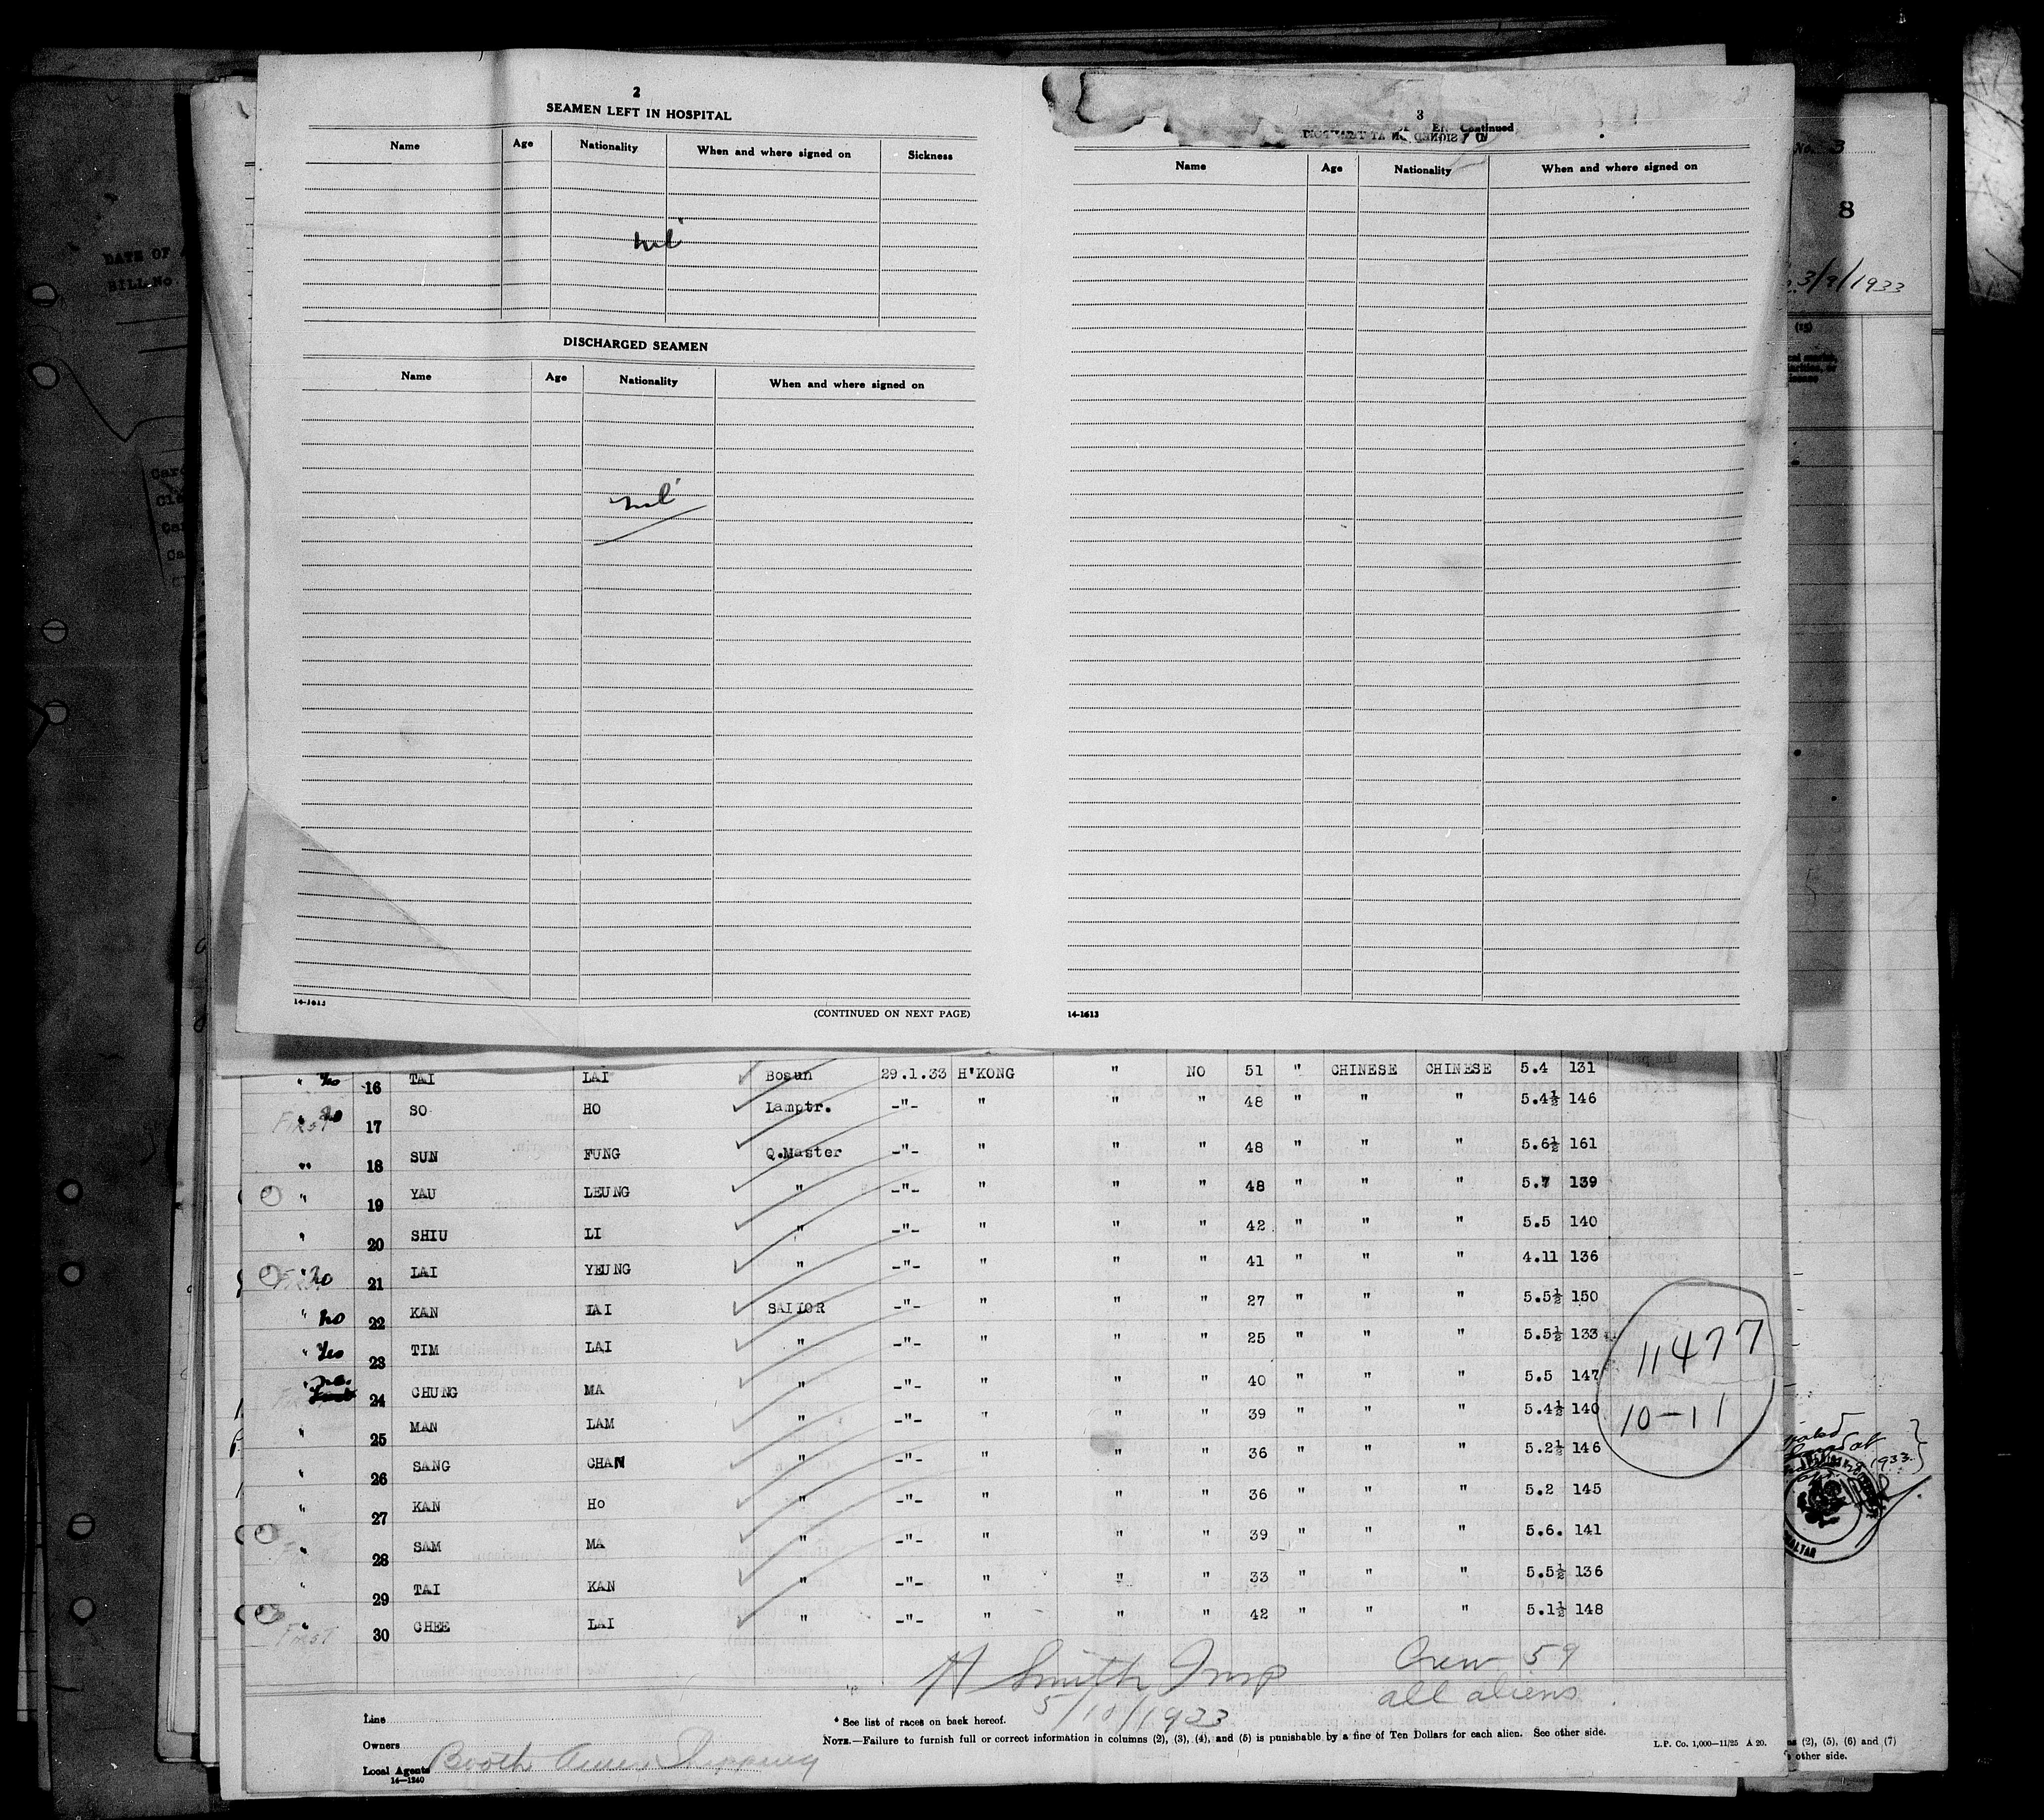 2
SEAMEN LEFT IN HOSPITAL
Name Age Nationality When and where signed on Sickness
nil
DISCHARGED SEAMEN
Name Age Nationality When and where signed on
nil
14-1613
(CONTINUED ON NEXT PAGE)
3
Continued
Name Age Nationality When and where signed on
14-1613
No. 3
8
3/9/1933
(15)
DATE OF
BILL No
" Yes 16 TAI LAI Bosun 29.1.33 H'KONG " NO 51 " CHINESE CHINESE 5.4 131
First " no 17 SO HO Lamptr. -"- " " " 48 " " " 5.4½ 146
" 18 SUN FUNG Q.Master -"- " " " 48 " " " 5.6½ 161
" 19 YAU LEUNG " -"- " " " 48 " " " 5.7 139
" 20 SHIU LI " -"- " " " 42 " " " 5.5 140
" no 21 LAI YEUNG " -"- " " " 41 " " " 4.11 136
" no 22 KAN LAI SAILOR -"- " " " 27 " " " 5.5½ 150
" Yes 23 TIM LAI " -"- " " " 25 " " " 5.5½ 133
" 24 CHUNG MA " -"- " " " 40 " " " 5.5 147
" 25 MAN LAM " -"- " " " 39 " " " 5.4½ 140
" 26 SANG CHAN " -"- " " " 36 " " " 5.2½ 146
" 27 KAN Ho " -"- " " " 36 " " " 5.2 145
" 28 SAM MA " -"- " " " 39 " " " 5.6. 141
" 29 TAI KAN " -"- " " " 33 " " " 5.5½ 136
First " 30 CHEE LAI " -"- " " " 42 " " " 5.1½ 148
11477
10-11
1933
H Smith Insp
5/10/1933
Crew 59
all aliens
Line
* See list of races on back hereof.
Owners
NOTE.—Failure to furnish full or correct information in columns (2), (3), (4), and (5) is punishable by a fine of Ten Dollars for each alien. See other side.
L.P. Co. 1,000—11/25 A 20.
Local Agents Booth Amer. Shipping
14—1240
(2), (5), (6) and (7)
other side.